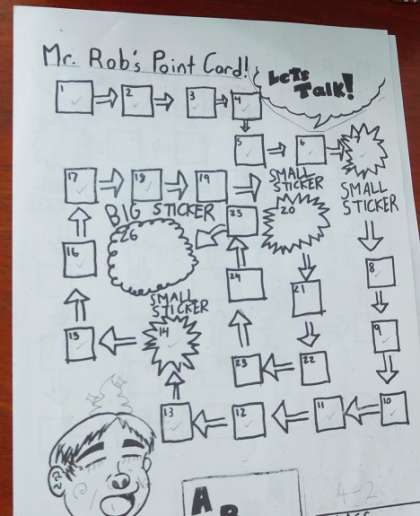 Mr. Rob's Point Card!
LETS
Talk!
1
2
3
4
5
6
SMALL
STICKER
17
18
19
SMALL
STICKER
20
BIG STICKER
25
26
16
24
21
8
SMALL
STICKER
14
15
9
23
22
13
12
11
10
A
B
4-2